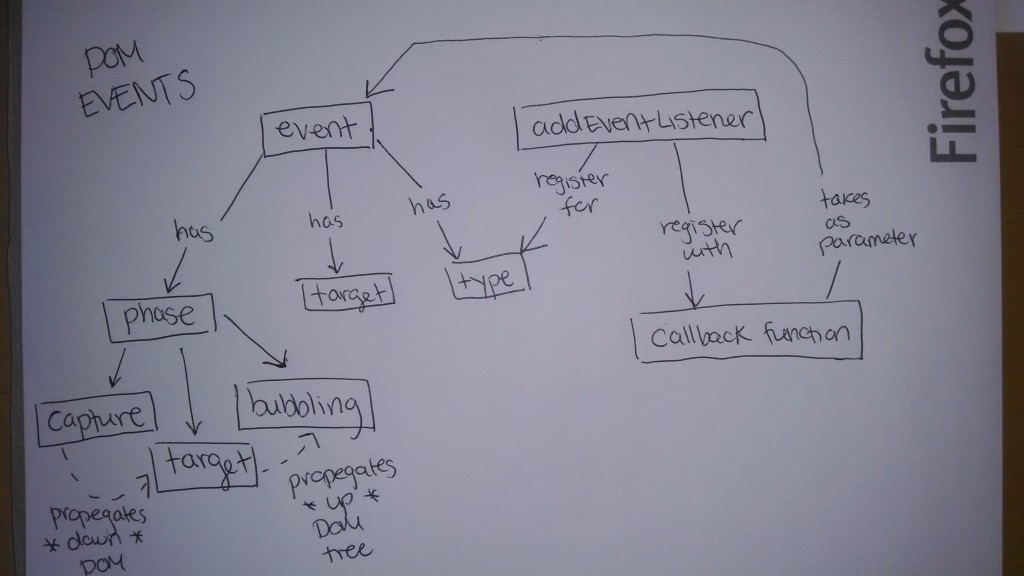 DOM
EVENTS
Firefox
event
addEventListener
has
has
has
register
for
register
with
takes
as
parameter
phase
target
type
callback function
capture
target
bubbling
propegates
*down*
DOM
propegates
*up*
DOM
tree